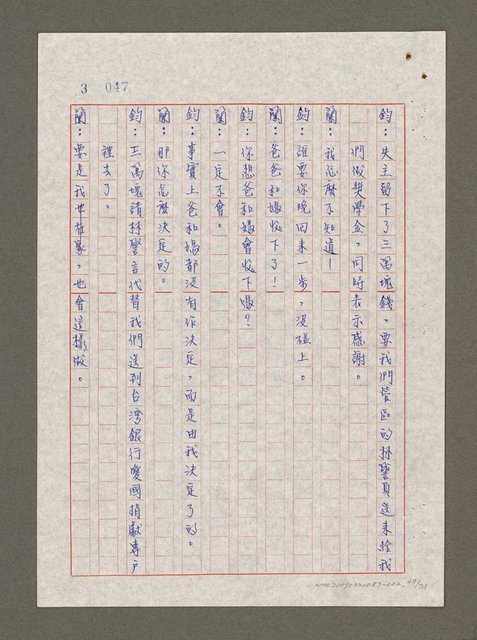 3 047
鈞：失主留下了三萬塊錢，要我們管區的林警員送來給我
們做獎學金，同時表示感謝。
蘭：我怎麼不知道！
鈞：誰要你晚回來一步，沒碰上。
蘭：爸爸和媽收下了！
鈞：你想爸和媽會收下嗎？
蘭：一定不會。
鈞：事實上爸和媽都沒有作決定，而是由我決定了的。
蘭：那你怎麼決定的。
鈞：三萬塊請林警員代替我們送到台灣銀行愛國捐獻專戶
裡去了。
蘭：要是我，也會這樣做。